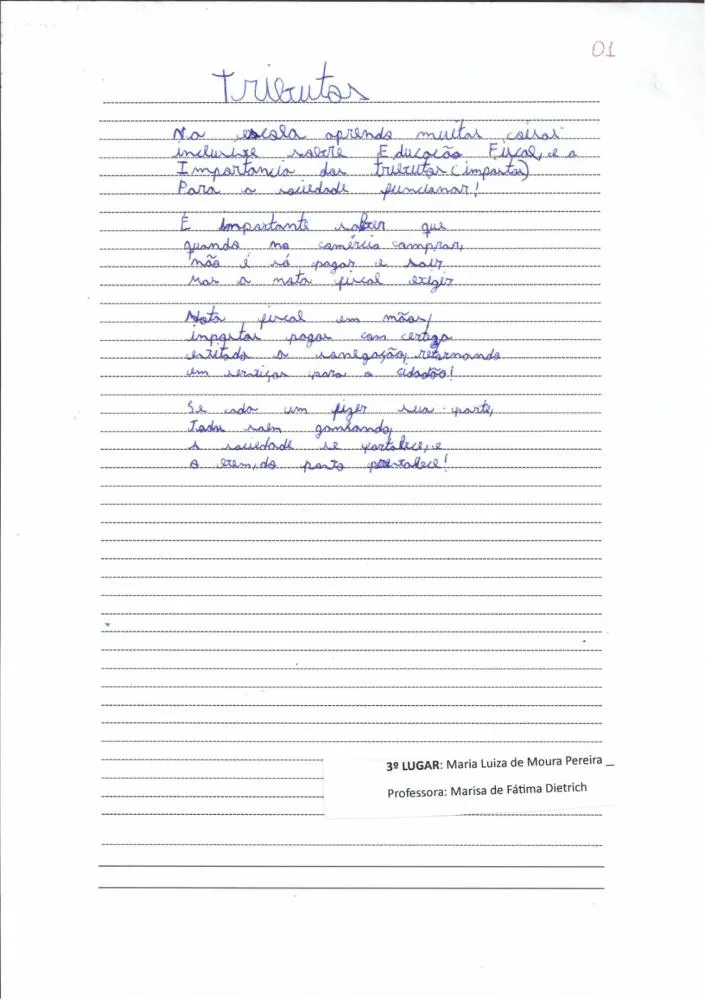 01
Tributos
Na escola aprendo muitas coisas
inclusive sobre Educação Fiscal, e a
Importancia dos tributos (impostos)
Para a sociedade funcionar!
É importante saber que
quando no comércio comprar,
não é só pagar e sair
Mas a nota fiscal exigir
Nota fiscal em mãos,
impostos pagos com certeza
evitado a sonegação, retornando
em serviços para o cidadão!
Se cada um fizer sua parte,
Todos saem ganhando,
A sociedade se fortalece, e
o bem, do posto prevalece!
3º LUGAR: Maria Luiza de Moura Pereira _
Professora: Marisa de Fátima Dietrich